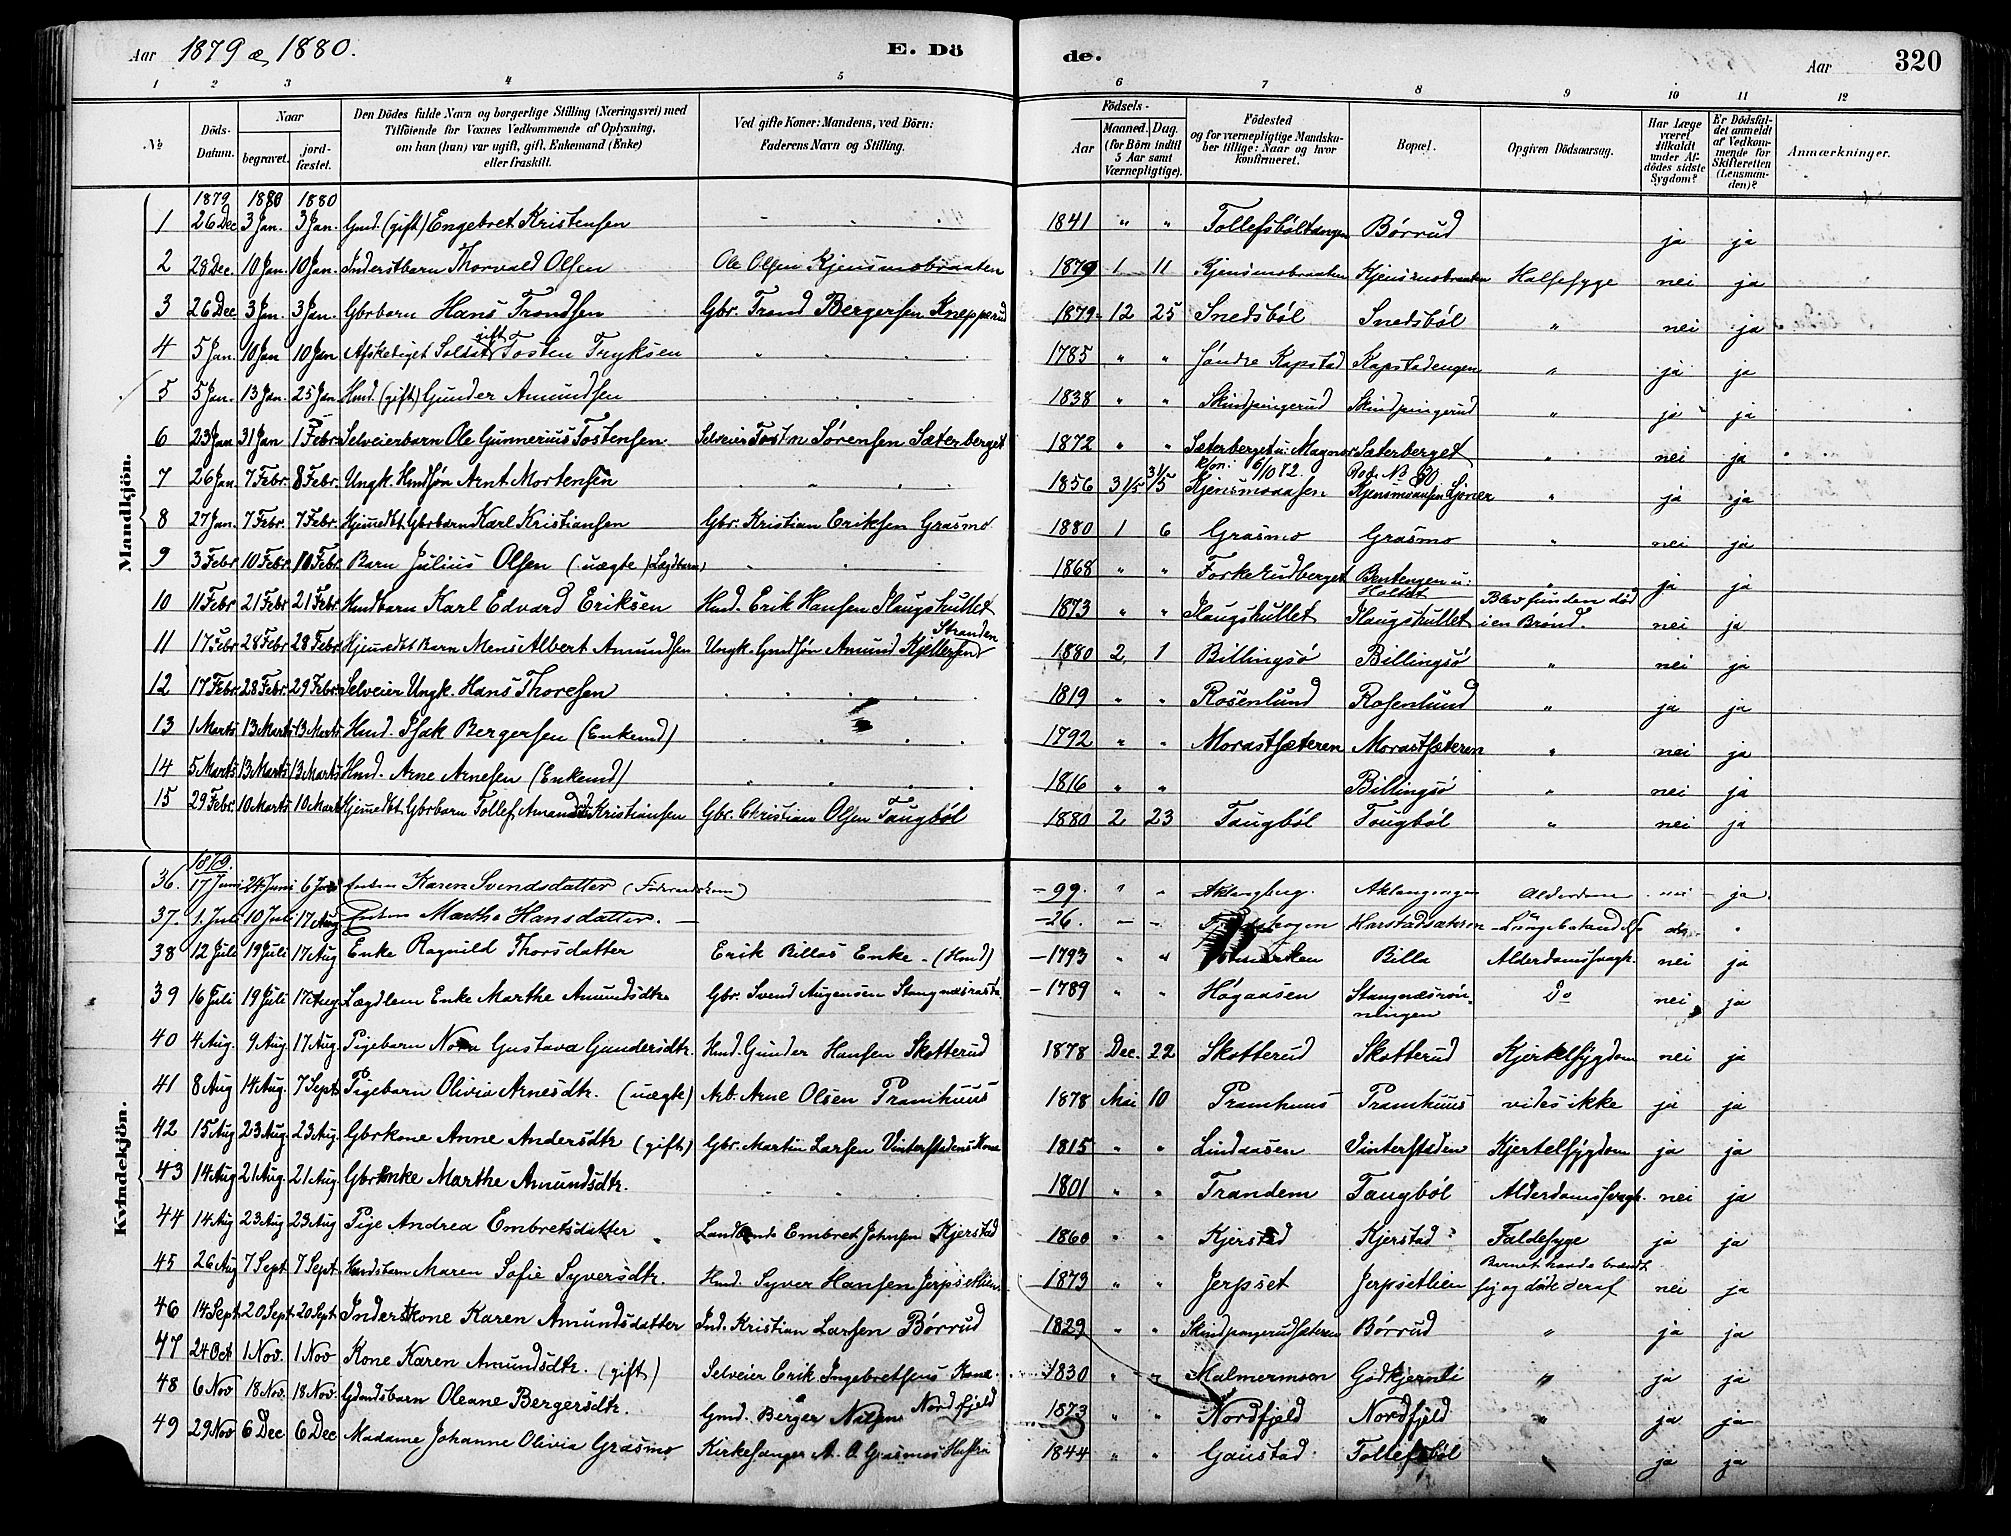 Aar 1879 & 1880. E. Dö de. Aar 320
1 2 3 4 5 6 7 8 9 10 11 12
№ Döds-Datum. Naar begravet. jordfæstet. Den Dödes fulde Navn og borgerlige Stilling (Næringsvei) med Tilföiende for Voxnes Vedkommende af Oplysning, om han (hun) var ugift, gift, Enkemand (Enke) eller fraskilt. Ved gifte Koner: Mandens, ved Börn: Faderens Navn og Stilling. Födsels- Aar Maaned. Dag. (for Börn indtil 5 Aar samt Værnepligtige). Födested og for værnepligtige Mandskaber tillige: Naar og hvor konfirmeret. Bopæl. Opgiven Dödsaarsag. Har Læge været tilkaldt under Afdödes sidste Sygdom? Er Dödsfaldet anmeldt af Vedkommende for Skifteretten (Lensmanden)? Anmærkninger.
Mandkjön.
1879 1880 1880
1 26 Dec 3 Jan. 3 Jan. Gmd. (gift) Engebret Kristensen " " " 1841 " " Tollefsböltangen Börrud ja ja
2 28 Dec. 10 Jan. 10 Jan. Inderstbarn Thorvald Olsen Ole Olsen Kjensmobraaten 1879 1 11 Kjensmobraaten Kjensmobraaten Halsesyge nei ja
3 26 Dec 3 Jan. 3 Jan. Gbrbarn Hans Trondsen Gbr. Trond Bergersen Knepperud 1879 12 25 Snedsböl Snedsböl " nei ja
4 5 Jan. 10 Jan 10 Jan Afskediget Soldat gift Tosten Tryksen " " " 1785 " " Söndre Kapstad Kapstadengen " ja ja
5 5 Jan. 13 Jan. 25 Jan Hmd. (gift) Gunder Amundsen " " " 1838 " " Skindpungerud Skindpungerud " ja ja
6 23 Jan 31 Jan 1 Febr. Selveierbarn Ole Gunnerius Tostensen Selveier Tosten Sörensen Sæterberget 1872 " " Sæterberget u: Magnor Sæterberget " nei ja
7 26 Jan. 7 Febr. 8 Febr. Ungk. Hmdsön Arnt Mortensen " " " 1856 3 1/5 Kjensmoaasen Kjensmoaasen " ja ja
8 27 Jan. 7 Febr. 7 Febr. Hjemedbt Gbrbarn Karl Kristiansen Gbr. Kristian Eriksen Grasmo 1880 1 6 Grasmo Grasmo " nei ja
9 3 Febr 10 Febr. 10 Febr. Barn Julius Olsen (uægte) Lægdbarn " " " 1868 " " Forkerudberget Bentengen u: Holtet " ja ja
10 11 Febr 21 Febr 21 Febr. Hmdbarn Karl Edvard Eriksen Hmd. Erik Hansen Haugshullet 1873 " " Haugshullet Haugshullet Blev funden död i en Brönd. nei ja
11 17 Febr 28 Febr 28 Febr. Hjemedbt Barn Mens Albert Amundsen Ungk. Gmdsön Amund Kjellersen Stranden 1880 2 1 Billingsö Billingsö " nei ja
12 17 Febr. 28 Febr. 29 Febr. Selveier Ungk. Hans Thoresen " " " 1819 " " Rosenlund Rosenlund " ja ja
13 1 Marts 13 Marts 13 Marts Hmd. Isak Bergersen (Enkemd) " " " 1792 " " Morastsæteren Morastsæteren " nei ja
14 5 Marts 13 Marts 13 Marts Hmd. Arne Arnesen (Enkemd) " " " 1816 " " Billingsö " nei ja
15 29 Febr. 10 Marts 10 Marts Hjemedbt. Gbrbarn Tollef Amandus Kristiansen Gbr. Christian Olsen Taugböl 1880 2 23 Taugböl Taugböl " nei ja
Kvindekjön.
1879.
36. 17 Juni 24 Juni 6 Enken Karen Svendsdatter -99. " " Aklangberg. Aklangengen Alderdom nei - ja.
37. 1. Juli 10 Juli 17 Aug Enken Marthe Hansdatter. -26. - - Harstadsætren Lungebetændelse "
38 12 Juli 19 Juli 17 Aug Enke Ragnild Thorsdatter Erik Billas Enke - (Hmd) -1793 " " Billa Alderdomssvagh. nei ja
39 16 Juli 19 Juli 17 Aug. Lægdlem Enke Marthe Amundsdtr Gbr. Svend Augensen -1789 " " Högaasen Stangnæsrönningen Do nei ja
40 4 Aug. 9 Aug. 17 Aug. Pigebarn Nora Gustava Gundersdtr. Hmd. Gunder Hansen Skotterud 1878 Dec. 22 Skotterud Skotterud Kjertelsygdom nei ja
41 8 Aug 14 Aug. 7 Sept. Pigebarn Olivia Arnesdtr. (uægte) Arb. Arne Olsen Pramhuus 1878 Mai 10 Pramhuus Pramhuus vides ikke ja ja
42 15 Aug 23 Aug. 23 Aug. Gbrkone Anne Andersdtr (gift) Gbr. Martin Larsen Vinterstadens Kone 1815 " " Lindaasen Vinterstaden Kjertelsygdom ja ja
43 14 Aug 21 Aug. 21 Aug Gbrenke Marthe Amundsdtr. " " " 1801 " " Trandem Taugböl Alderdomssvagh. nei ja
44 14 Aug 23 Aug 23 Aug Pige Andrea Embretsdatter " Embret Johnsen Kjerstad 1860 " " Kjerstad Kjerstad Faldesyge ja ja
45 26 Aug 7 Sept 7 Sept. Hmdsbarn Maren Sofie Syversdtr. Hmd. Syver Hansen Jerpsetlien 1873 " " Jerpset Jerpsetlien Barnet havde brændt sig og döde deraf nei ja
46 14 Sept. 20 Sept. 20 Sept. Inderstkone Karen Amundsdatter Ind. Kristian Larsen Börrud 1829 " " Skindpungerudsæteren Börrud " ja ja
47 24 Oct 1 Nov. 1 Nov Kone Karen Amundsdtr. (gift) Selveier Erik Ingebretsens Kone 1830 " " Malmermoen Gödkjernli " ja ja
48 6 Nov 18 Nov. 18 Nov. Gmdsbarn Oleane Bergersdtr. Gmd. Berger Nilsen Nordfjeld 1873 " " Nordfjeld Nordfjeld " ja ja
49 29 Nov 6 Dec 6 Dec Madame Johanne Olivia Grasmo Kirkesanger A. O. Grasmos Hustru 1844 " " Gaustad Tollefsböl " ja ja